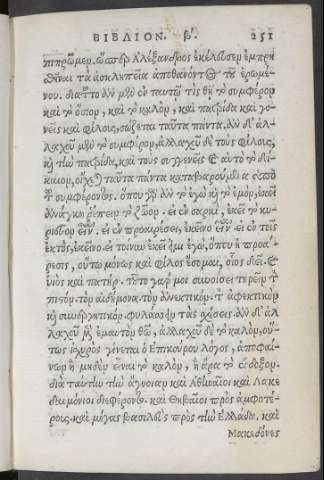 ΒΙΒΛΙΟΝ. β'. 251
πιπρῶμεν. ὥσπερ Ἀλέξανδρος ἐκέλευσεν ἐμπρη
σθῆναι τὰ ἀσκληπεῖα ἀποθανόντος τοῦ ἐρωμέ-
νου. διατοῦτο ἂν μὲν ἐν ταυτῷ τὶς θῇ τὸ συμφέρον
καὶ τὸ ὅσιον, καὶ τὸ καλὸν, καὶ πατρίδα καὶ γο-
νεῖς καὶ φίλους, σώζεται ταῦτα πάντα. ἂν δ' ἀλ-
λαχοῦ μὲν τὸ συμφέρον, ἀλλαχοῦ δὲ τοὺς φίλους,
καὶ τὴν πατρίδα, καὶ τοὺς συγγενεῖς καὶ αυτὸ τὸ δί-
καιον, οἴχεται ταῦτα πάντα καταβαρούμενα ὑπὸ
τοῦ συμφέροντος. ὅπου γὰρ ἂν τὸ ἐγὼ καὶ τὸ ἐμὸν, ἐκεῖ
ἀνάγκη ῥέπειν τὸ ζῶον. εἰ ἐν σαρκὶ, ἐκεῖ τὸ κυ-
ριεῦον εἶναι. εἰ ἐν προαιρέσει, ἐκεῖνο εἶναι. εἰ ἐν τοῖς
ἐκτὸς, ἐκεῖνο. εἰ τοίνυν ἐκεῖ εἰμι ἐγὼ, ὅπου ἡ προαί-
ρεσις, οὕτω μόνως καὶ φίλος ἔσομαι, οἷος δεῖ. καὶ
υἱὸς καὶ πατήρ. τοῦτο γάρ μοι συνοίσει τηρεῖν τὸν
πιστόν. τὸν αἰδήμονα. τὸν ἀνεκτικόν. τὸν ἀφεκτικὸν
καὶ συνεργητικόν. φυλάσσειν τὰς σχέσεις. ἂν δ' ἀλ-
λαχοῦ μὲν ἐμαυτὸν θῶ, ἀλλαχοῦ δὲ τὸ καλὸν, οὕ-
τως ἰσχυρὸς γίνεται ὁ Ἐπικούρου λόγος, ἀποφαί-
νων ἢ μηδὲν εἶναι τὸ καλὸν, ἢ ἄρα τὸ ἔνδοξον.
διὰ ταύτην τὴν ἄγνοιαν καὶ Ἀθηναῖοι καὶ Λακε
δαιμόνιοι διεφέροντο. καὶ Θηβαῖοι πρὸς ἀμφοτέ-
ρους. καὶ μέγας βασιλεὺς πρὸς τὴν Ἑλλάδα. καὶ
Μακεδόνες